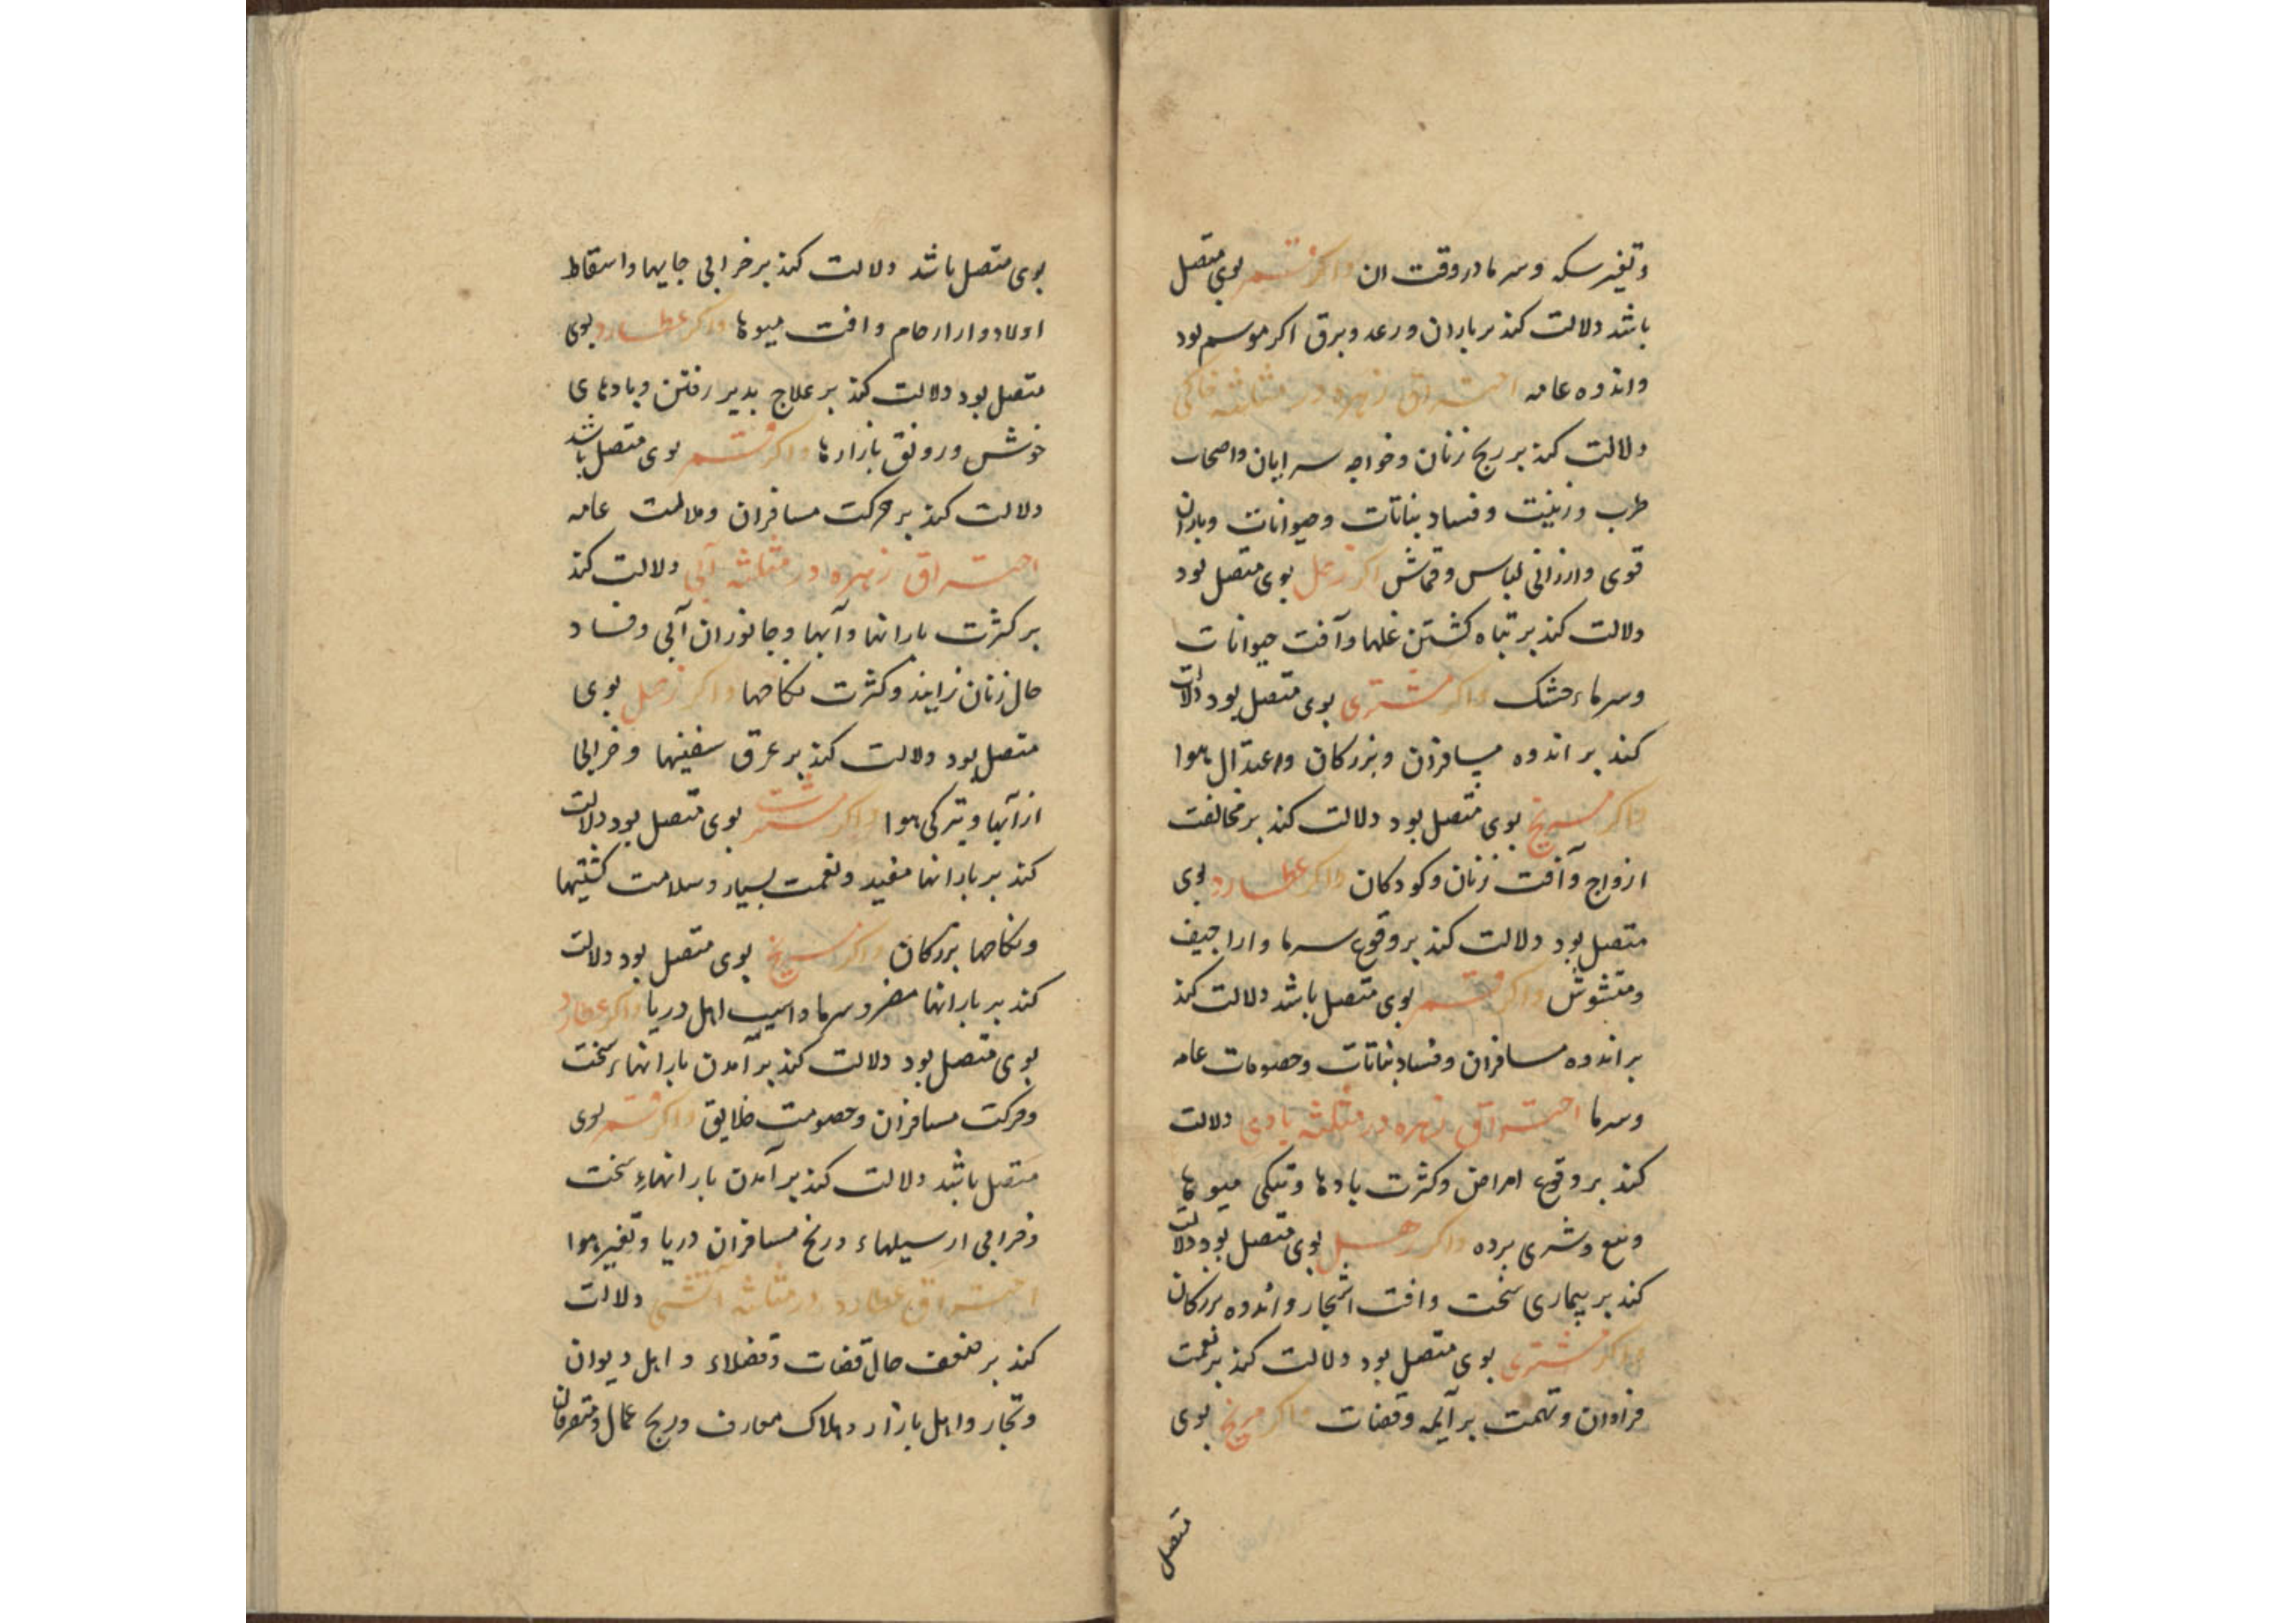 وتغیر سکه وسرما در وقت ان واکر قمر بوی متصل
باشد دلالت کند بر باران ورعد وبرق اکر موسم بود
واندوه عامه احتراق زهره در مثلثه خاکی
دلالت کند بر رنج زنان وخواجه سرایان واصحاب
طرب وزینت وفساد نباتات وحیوانات وباران
قوی وارزانی لباس وقماش اکر زحل بوی متصل بود
دلالت کند بر تباه کشتن غلها وآفت حیوانات
وسرماء خشک واکر مشتری بوی متصل بود دلالت
کند بر اندوه مسافران وبزرکان واعتدال هوا
واکر مریخ بوی متصل بود دلالت کند بر مخالفت
ازواج وآفت زنان وکودکان واکر عطارد بوی
متصل بود دلالت کند بر وقوع سرما واراجیف
ومتشوش واکر قمر بوی متصل باشد دلالت کند
بر اندوه مسافران وفساد نباتات وخصومات عامه
وسرما احتراق زهره در مثلثه بادی دلالت
کند بر وقوع امراض وکثرت بادها وتنکی میوها
وبیع وشری برده واکر زحل بوی متصل بود دلالت
کند بر بیماری سخت وافت اشجار واندوه بزرکان
واکر مشتری بوی متصل بود دلالت کند بر نعمت
فراوان وتهمت بر آیمه وقضات واکر مریخ بوی
متصل
بوی متصل باشد دلالت کند بر خرابی جایها واسقاط
اولاد وار ارحام وافت میوها واکر عطارد بوی
متصل بود دلالت کند بر علاج بدیر رفتن وبادهای
خوش ورونق بازارها واکر قمر بوی متصل باشد
دلالت کند بر حرکت مسافران وملالت عامه
احتراق زهره در مثلثه آبی دلالت کند
بر کثرت بارانها وآبها وجانوران آبی وفساد
حال زنان زاینده وکثرت نکاحها واکر زحل بوی
متصل بود دلالت کند بر غرق سفینها وخرابی
از آبها وتیرکی هوا واکر مشتری بوی متصل بود دلالت
کند بر بارانها مفید ونعمت بسیار وسلامت کشتیها
ونکاحها بزرکان واکر مریخ بوی متصل بود دلالت
کند بر بارانها مضر وسرما واسیب اهل دریا واکر عطارد
بوی متصل بود دلالت کند بر آمدن بارانهاء سخت
وحرکت مسافران وخصومت خلایق واکر قمر بوی
متصل باشد دلالت کند بر آمدن بارانهاء سخت
وخرابی از سیلهاء ورنج مسافران دریا وتغیر هوا
احتراق عطارد در مثلثه آتشی دلالت
کند بر ضعف حال قضات وفضلاء واهل دیوان
وتجار واهل بازار وهلاک معارف ورنج عمال ومتصرفان